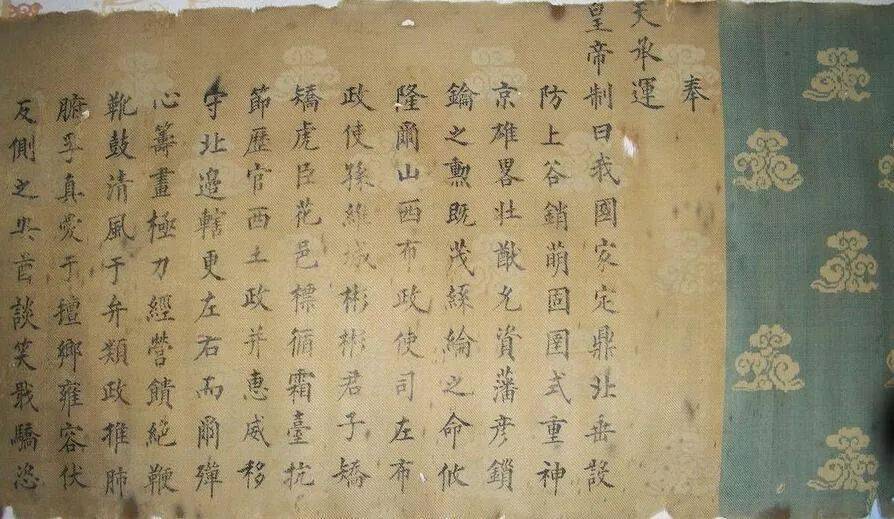 奉
天承運
皇帝制曰我國家定鼎北垂設
防上谷銷萌固圉式重神
京雄畧壯猷允資藩彥鎖
鑰之勲既茂絲綸之命攸
隆爾山西布政使司左布
政使孫維城彬彬君子矯
矯虎臣花邑標循霜臺抗
節歷官西土政并惠威移
守北邉轄更左右而爾殫
心籌畫極力經營饋絕鞭
靴鼓清風于弁類政推肺
腑孚真愛于羶鄉雍容伏
反側之酋談笑戢驕恣